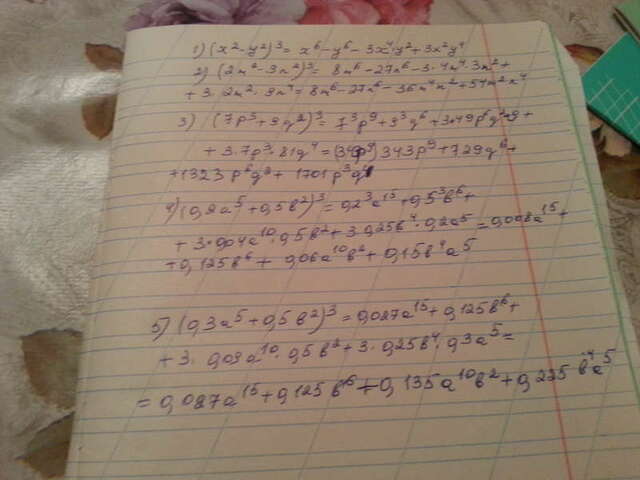 1) (x²-y²)³ = x⁶-y⁶-3x⁴y²+3x²y⁴
2) (2m²-3n²)³ = 8m⁶-27n⁶-3·4m⁴·3n²+
+3·2m²·9n⁴ = 8m⁶-27n⁶-36m⁴n²+54m²n⁴
3) (7p³+9q²)³ = 7³p⁹+9³q⁶+3·49p⁶q²·9+
+3·7p³·81q⁴ = 343p⁹+729q⁶+
+1323p⁶q²+1701p³q⁴
4) (0,2a⁵+0,5b²)³ = 0,2³a¹⁵+0,5³b⁶+
+3·0,04a¹⁰·0,5b²+3·0,25b⁴·0,2a⁵ = 0,008a¹⁵+
+0,125b⁶+0,06a¹⁰b²+0,15b⁴a⁵
5) (0,3a⁵+0,5b²)³ = 0,027a¹⁵+0,125b⁶+
+3·0,09a¹⁰·0,5b²+3·0,25b⁴·0,3a⁵=
=0,027a¹⁵+0,125b⁶+0,135a¹⁰b²+0,225b⁴a⁵